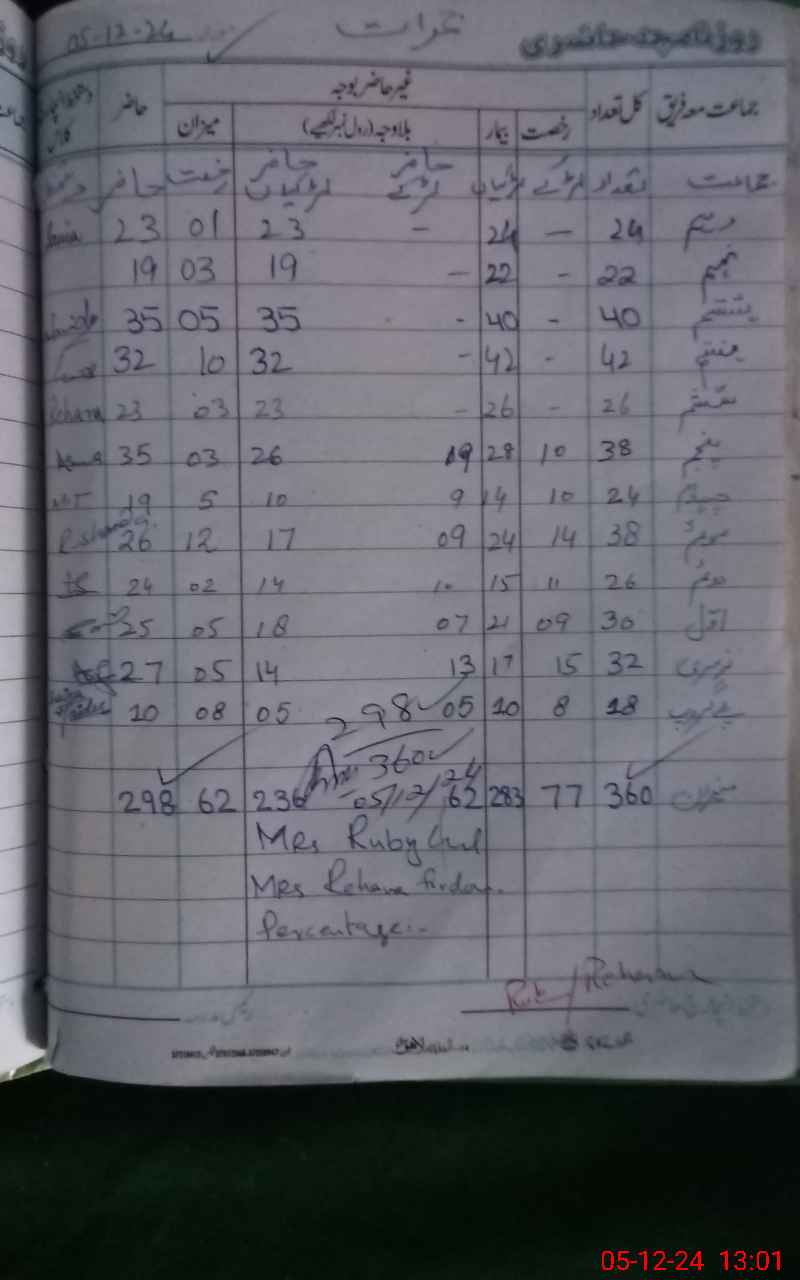 روزنامچہ حاضری 05-12-24
جماعت معہ فریق کل تعداد غیر حاضر بوجہ حاضر
رخصت بیمار بلاوجہ (رول نمبر لکھیے) میزان
جماعت تعداد لڑکے لڑکیاں حاضر لڑکے حاضر لڑکیاں رخصت حاضر
دہم 24 — 24 - 23 01 23
نہم 22 - 22 - 19 03 19
ہشتم 40 - 40 - 35 05 35
ہفتم 42 - 42 - 32 10 32
ششم 26 - 26 - 23 03 23 Rehana
پنجم 38 10 28 19 26 03 35 Asma
چہارم 24 10 14 9 10 5 19
سوئم 38 14 24 09 17 12 26
دوئم 26 11 15 10 14 02 24
اول 30 09 21 07 18 05 25
نرسری 32 15 17 13 14 05 27
18 8 10 05 05 08 10
298
360
میزان 360 77 283 62 236 62 298
05/12/24
Mrs Ruby Gul
Mrs Rehana firdos.
Percentage:-
Rehana
05-12-24 13:01